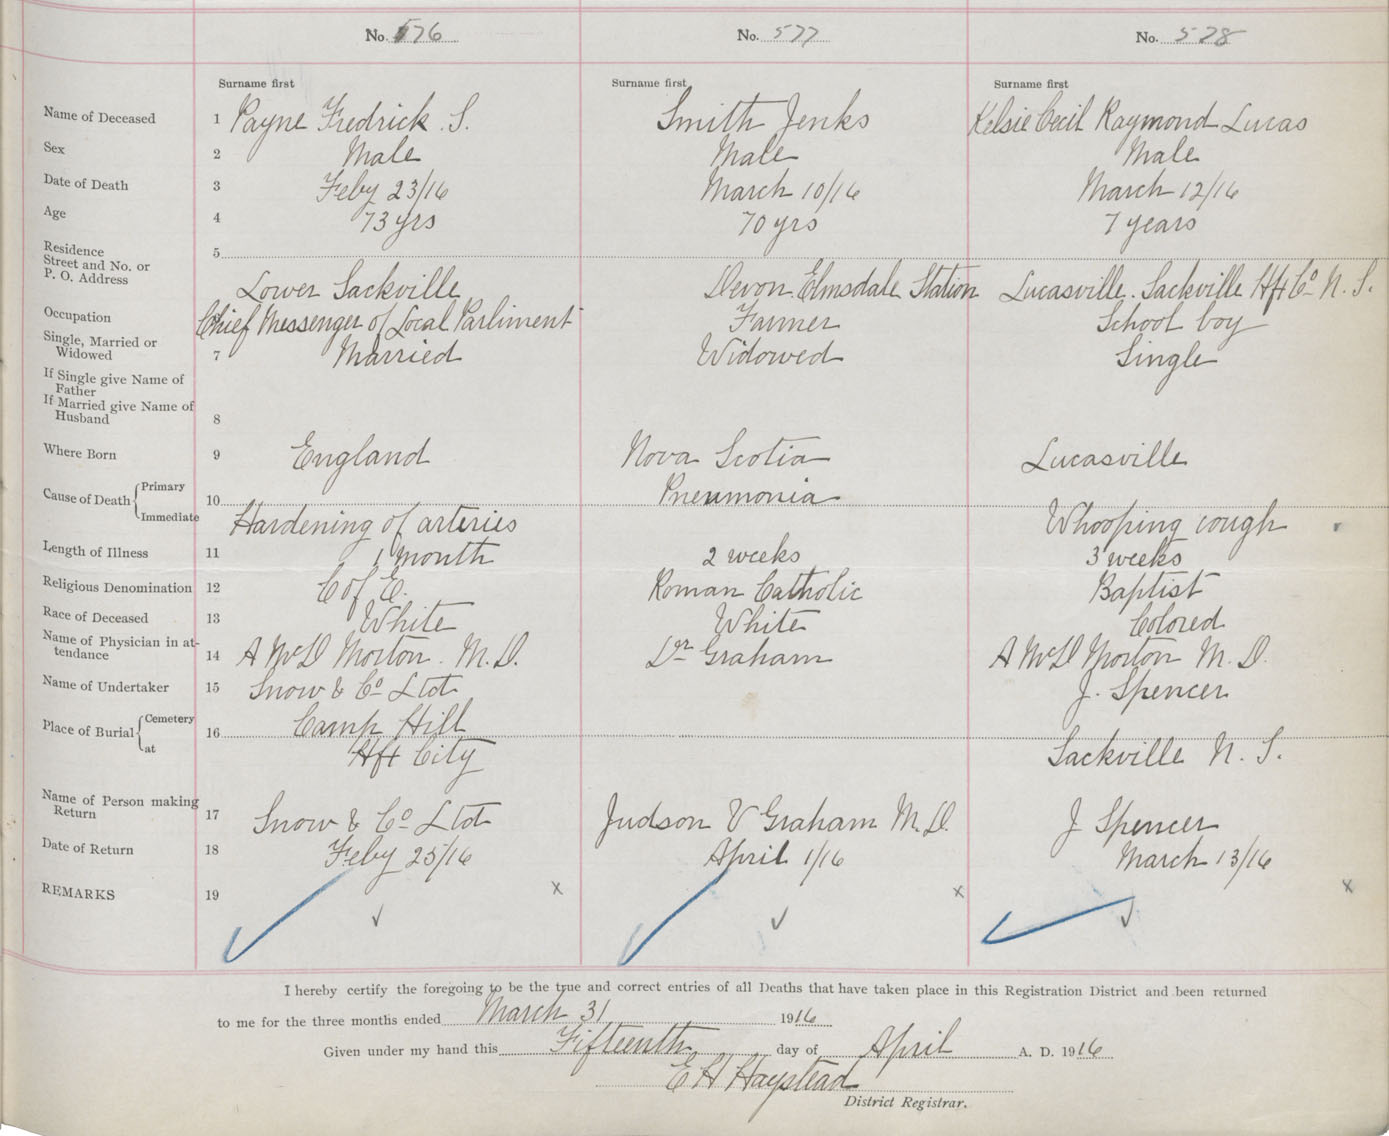 No. 576 No. 577 No. 578
Surname first Surname first Surname first
Name of Deceased 1 Payne Fredrick . S. Smith Jenks Kelsie Cecil Raymond Lucas
Sex 2 Male Male Male
Date of Death 3 Feby 23/16 March 10/16 March 12/16
Age 4 73 yrs 70 yrs 7 years
Residence
Street and No. or 5
P. O. Address Lower Sackville Devon. Elmsdale Station Lucasville. Sackville Hfx Co N. S.
Occupation Chief Messenger of Local Parliment Farmer School boy
Single, Married or
Widowed 7 Married Widowed Single
If Single give Name of
Father
If Married give Name of
Husband 8
Where Born 9 England Nova Scotia Lucasville
Cause of Death { Primary 10 Pneumonia
Immediate Hardening of arteries Whooping cough
Length of Illness 11 1 month 2 weeks 3 weeks
Religious Denomination 12 C of E. Roman Catholic Baptist
Race of Deceased 13 White White Colored
Name of Physician in at-
tendance 14 A McD Morton. M.D. Dr Graham A McD Morton M. D.
Name of Undertaker 15 Snow & Co Ltd J. Spencer
Place of Burial { Cemetery 16 Camp Hill
at Hfx City Sackville N. S.
Name of Person making
Return 17 Snow & Co Ltd Judson V Graham M.D. J Spencer
Date of Return 18 Feby 25/16 April 1/16 March 13/16
REMARKS 19 x x x
I hereby certify the foregoing to be the true and correct entries of all Deaths that have taken place in this Registration District and been returned
to me for the three months ended March 31 1916
Given under my hand this Fifteenth day of April A. D. 1916
E H Haystead
District Registrar.